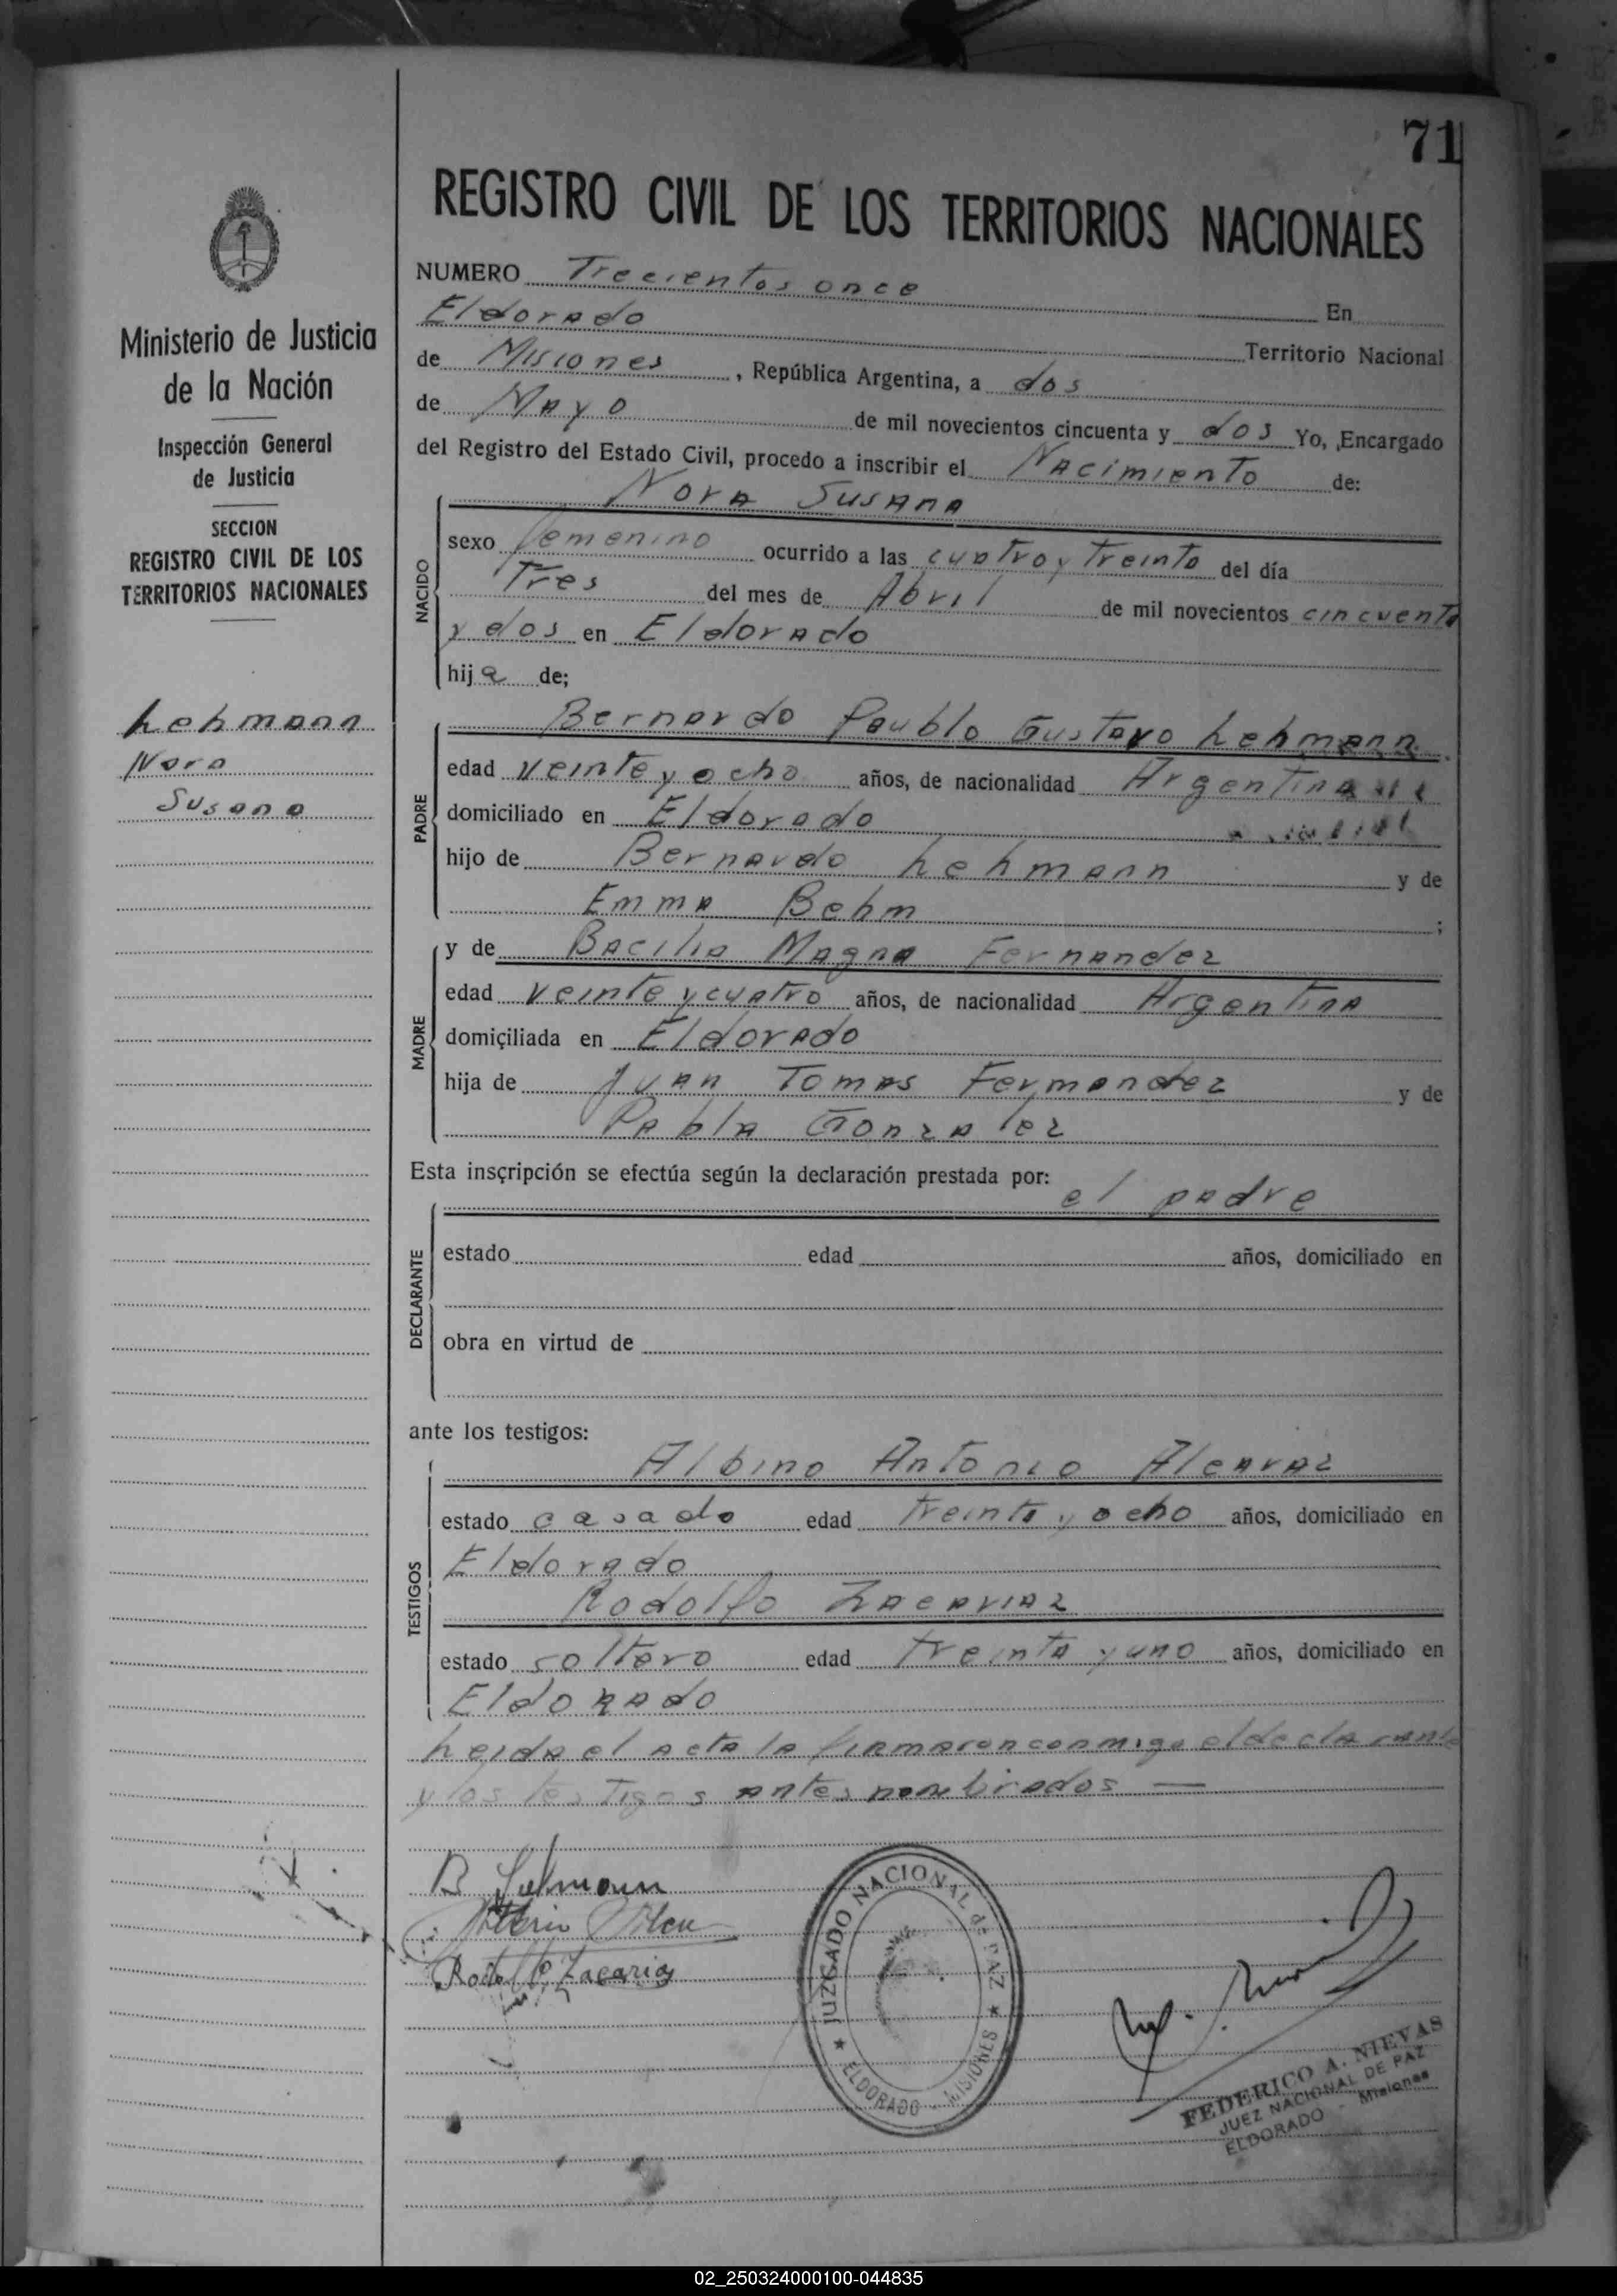 71
REGISTRO CIVIL DE LOS TERRITORIOS NACIONALES
Ministerio de Justicia
de la Nación
Inspección General
de Justicia
SECCION
REGISTRO CIVIL DE LOS
TERRITORIOS NACIONALES
Lehmann
Nora
Susana
NUMERO Trecientos once
En
Eldorado
Territorio Nacional
de Misiones, República Argentina, a dos
de Mayo de mil novecientos cincuenta y dos Yo, Encargado
del Registro del Estado Civil, procedo a inscribir el Nacimiento de:
Nora Susana
NACIDO
sexo femenino ocurrido a las cuatro y treinta del día
Tres del mes de Abril de mil novecientos cincuenta
y dos en Eldorado
hija de;
Bernardo Paublo Gustavo Lehmann
PADRE
edad veinte y ocho años, de nacionalidad Argentina
domiciliado en Eldorado
hijo de Bernardo Lehmann y de
Emma Behm ;
MADRE
y de Bacilia Magna Fernandez
edad veinte y cuatro años, de nacionalidad Argentina
domiciliada en Eldorado
hija de Juan Tomas Fernandez y de
Pabla Gonzalez
Esta inscripción se efectúa según la declaración prestada por:
el padre
DECLARANTE
estado edad años, domiciliado en
obra en virtud de
ante los testigos:
Albino Antonio Alcaraz
TESTIGOS
estado casado edad treinta y ocho años, domiciliado en
Eldorado
Rodolfo Zacariaz
estado soltero edad treinta y uno años, domiciliado en
Eldorado
Leida el acta la firmaron conmigo el declarante
y los testigos antes nombrados —
B Lehmann
Rodolfo Zacarias
JUZGADO NACIONAL de PAZ
★ ELDORADO - MISIONES ★
FEDERICO A. NIEVAS
JUEZ NACIONAL DE PAZ
ELDORADO - Misiones
02_250324000100-044835